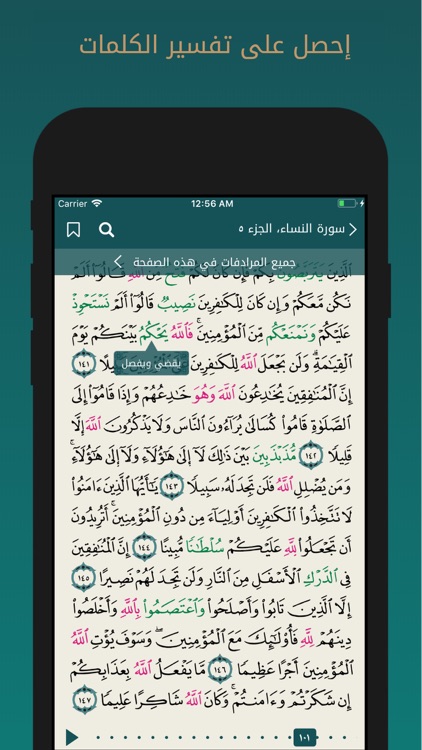 إحصل على تفسير الكلمات
Carrier 12:56 AM
سورة النساء، الجزء ٥
جميع المرادفات في هذه الصفحة
ٱلَّذِينَ يَتَرَبَّصُونَ بِكُمْ فَإِن كَانَ لَكُمْ فَتْحٌ مِّنَ ٱللَّهِ قَالُوٓا۟ أَلَمْ
نَكُن مَّعَكُمْ وَإِن كَانَ لِلْكَـٰفِرِينَ نَصِيبٌ قَالُوٓا۟ أَلَمْ نَسْتَحْوِذْ
عَلَيْكُمْ وَنَمْنَعْكُم مِّنَ ٱلْمُؤْمِنِينَ ۚ فَٱللَّهُ يَحْكُمُ بَيْنَكُمْ يَوْمَ
ٱلْقِيَـٰمَةِ ۗ وَلَن يَجْعَلَ ٱللَّهُ لِلْكَـٰفِرِينَ يقضي ويفصل ١٤١
إِنَّ ٱلْمُنَـٰفِقِينَ يُخَـٰدِعُونَ ٱللَّهَ وَهُوَ خَـٰدِعُهُمْ وَإِذَا قَامُوٓا۟ إِلَى
ٱلصَّلَوٰةِ قَامُوا۟ كُسَالَىٰ يُرَآءُونَ ٱلنَّاسَ وَلَا يَذْكُرُونَ ٱللَّهَ إِلَّا
قَلِيلًا ١٤٢ مُّذَبْذَبِينَ بَيْنَ ذَٰلِكَ لَآ إِلَىٰ هَـٰٓؤُلَآءِ وَلَآ إِلَىٰ هَـٰٓؤُلَآءِ ۚ
وَمَن يُضْلِلِ ٱللَّهُ فَلَن تَجِدَ لَهُۥ سَبِيلًا ١٤٣ يَـٰٓأَيُّهَا ٱلَّذِينَ ءَامَنُوا۟
لَا تَتَّخِذُوا۟ ٱلْكَـٰفِرِينَ أَوْلِيَآءَ مِن دُونِ ٱلْمُؤْمِنِينَ ۚ أَتُرِيدُونَ
أَن تَجْعَلُوا۟ لِلَّهِ عَلَيْكُمْ سُلْطَـٰنًا مُّبِينًا ١٤٤ إِنَّ ٱلْمُنَـٰفِقِينَ
فِى ٱلدَّرْكِ ٱلْأَسْفَلِ مِنَ ٱلنَّارِ وَلَن تَجِدَ لَهُمْ نَصِيرًا ١٤٥
إِلَّا ٱلَّذِينَ تَابُوا۟ وَأَصْلَحُوا۟ وَٱعْتَصَمُوا۟ بِٱللَّهِ وَأَخْلَصُوا۟
دِينَهُمْ لِلَّهِ فَأُو۟لَـٰٓئِكَ مَعَ ٱلْمُؤْمِنِينَ ۖ وَسَوْفَ يُؤْتِ ٱللَّهُ
ٱلْمُؤْمِنِينَ أَجْرًا عَظِيمًا ١٤٦ مَّا يَفْعَلُ ٱللَّهُ بِعَذَابِكُمْ
إِن شَكَرْتُمْ وَءَامَنتُمْ ۚ وَكَانَ ٱللَّهُ شَاكِرًا عَلِيمًا ١٤٧
١٠١